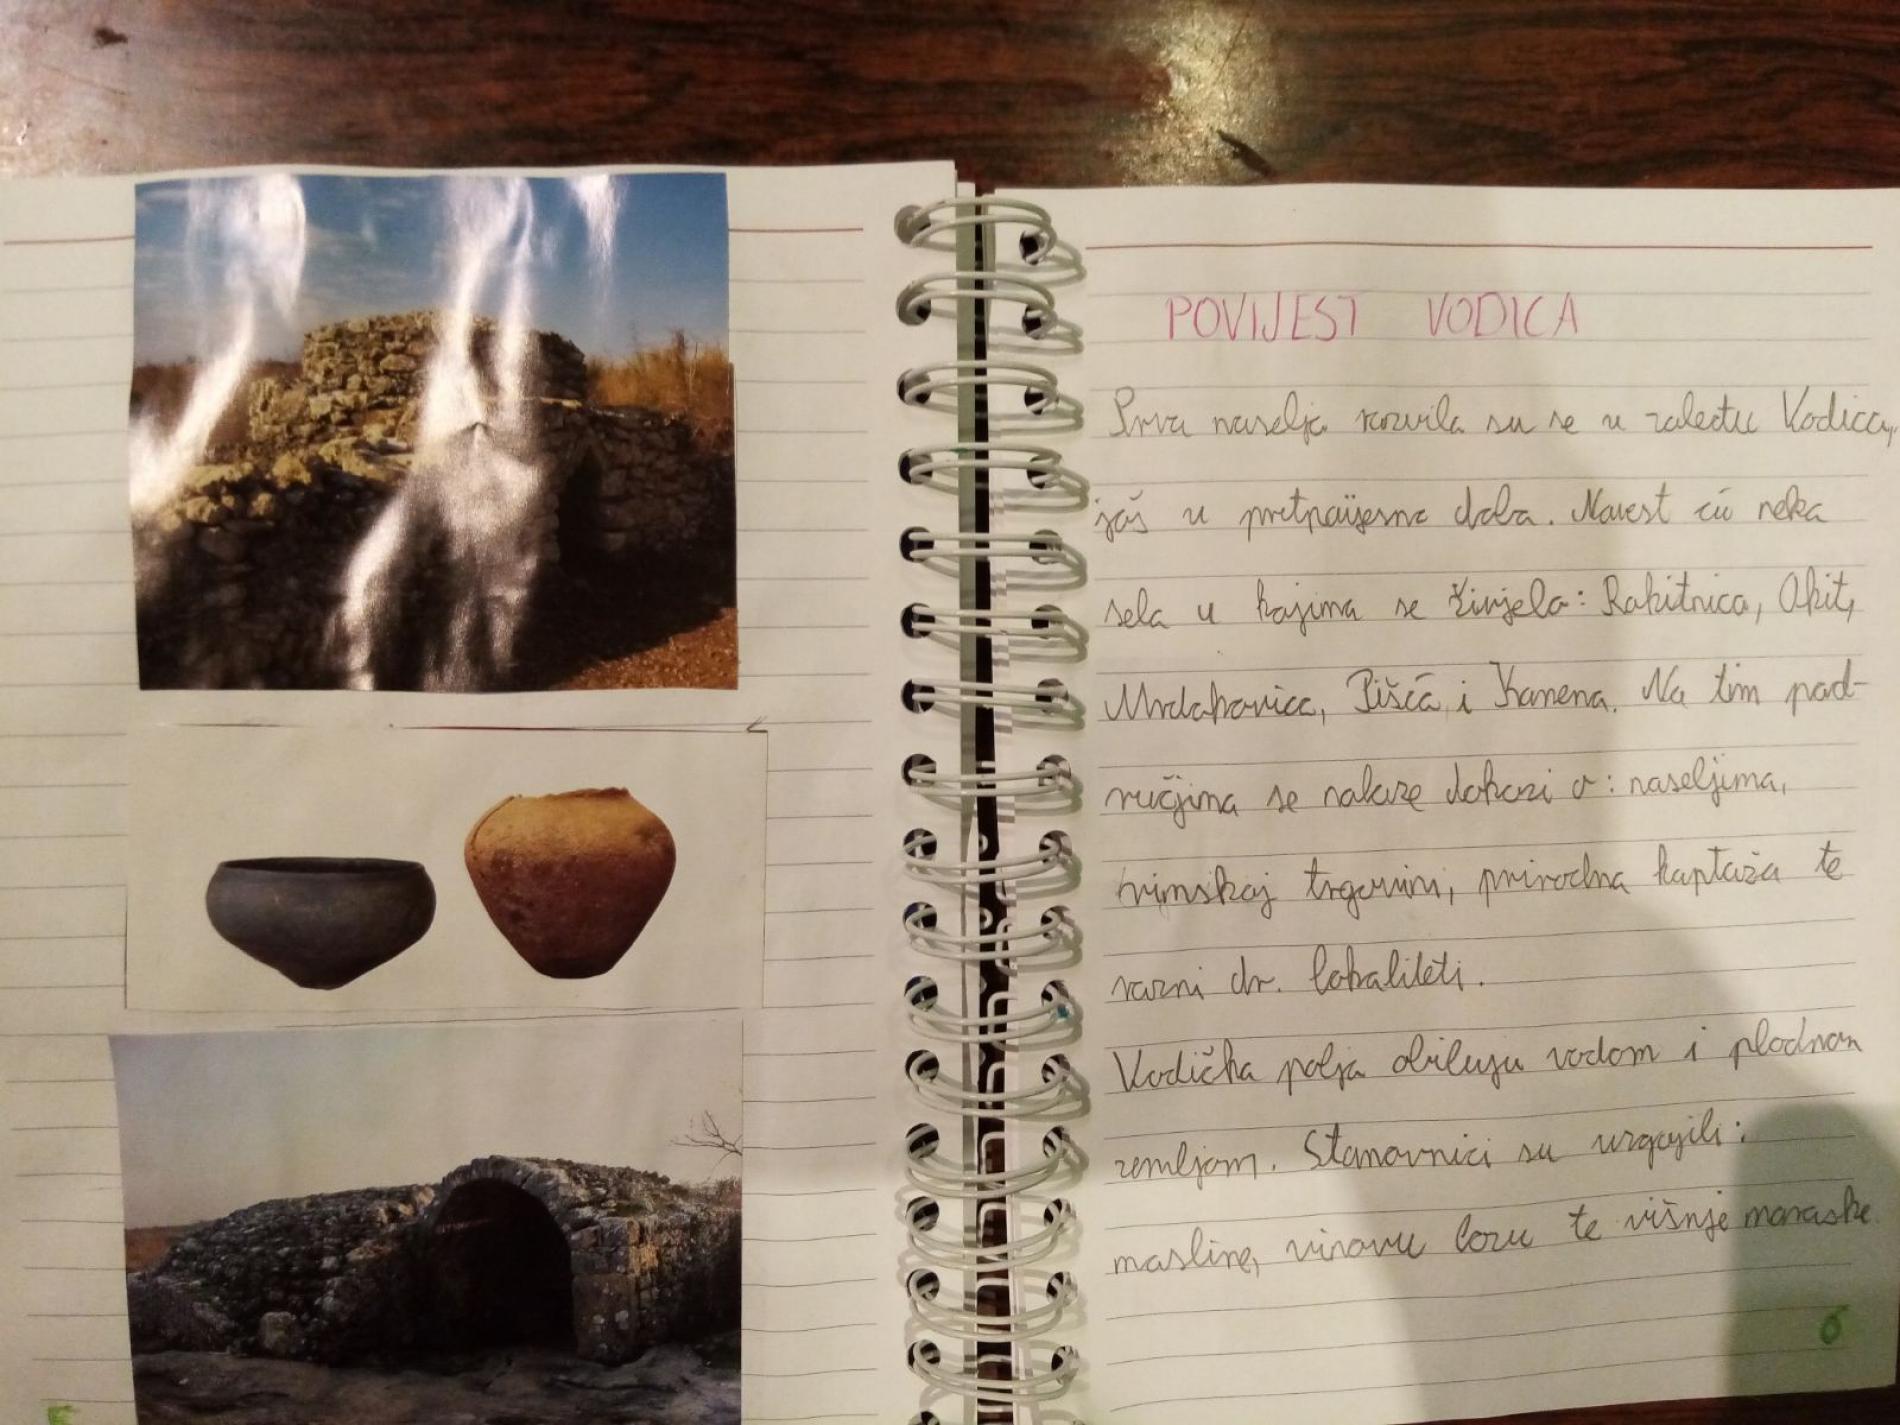 POVIJEST VODICA
Prva naselja razvila su se u zaleđu Vodica,
još u pretpovijesno doba. Navest ću neka
sela u kojima se živjelo: Rakitnica, Okit,
Mrdakovica, Pišća i Kamena. Na tim pod-
ručjima se nalaze dokazi o: naseljima,
rimskoj trgovini, prirodna kaptaža te
razni dr. lokaliteti.
Vodička polja obiluju vodom i plodnom
zemljom. Stanovnici su uzgajili:
masline, vinovu lozu te višnje maraske
5
6